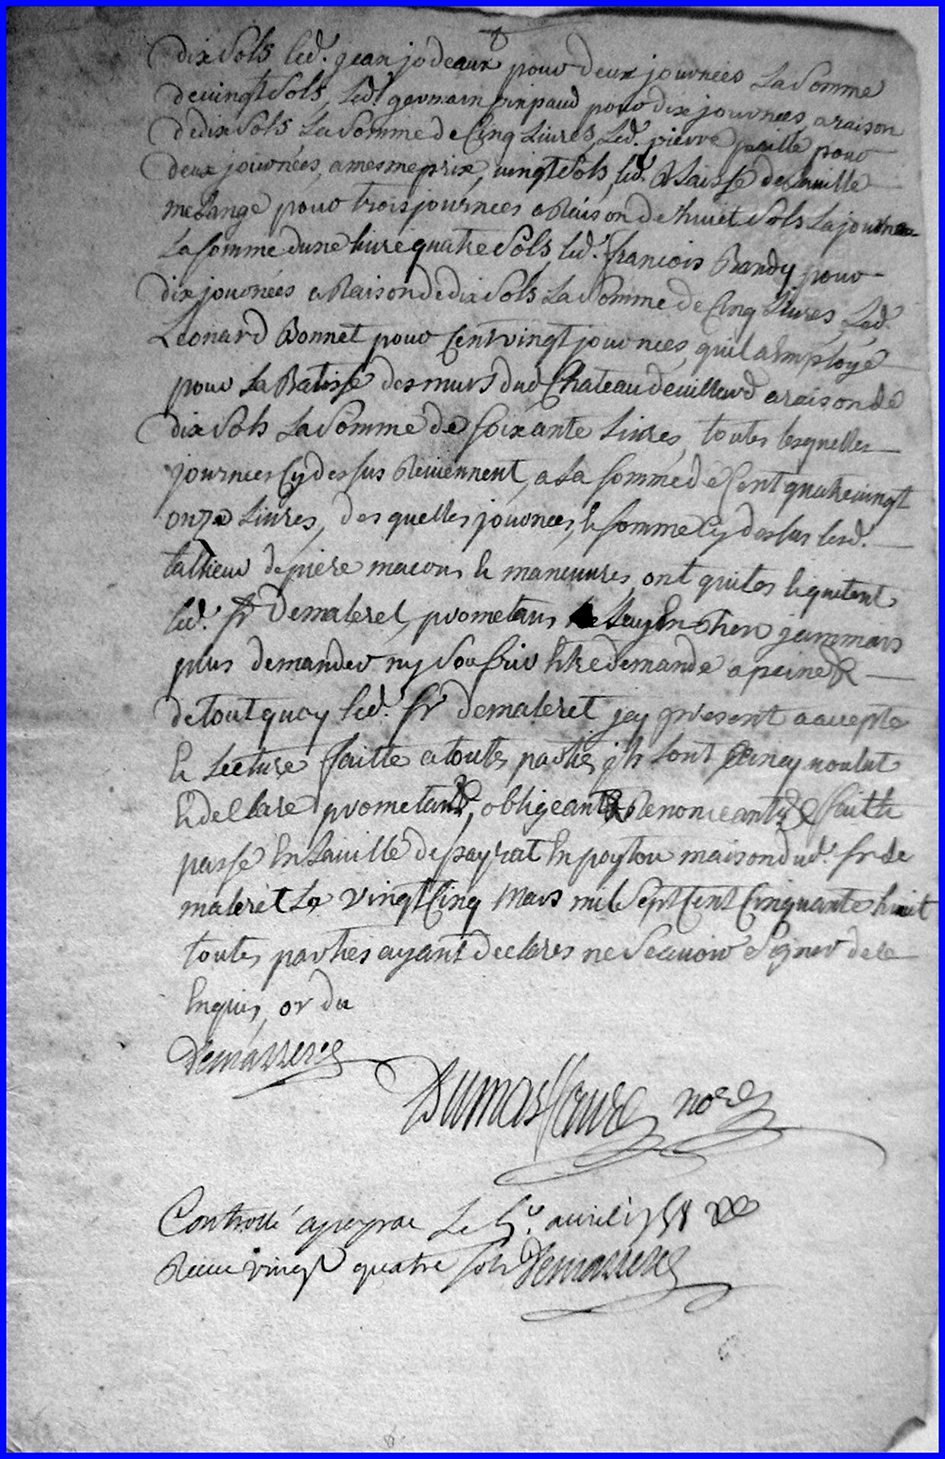 dix sols led. jean jodeaux pour deux journées la somme
de vingt sols, led. germain pinpaud pour dix journées, a raison
de dix sols la somme de Cinq Livres, Led. pierre paille pour
deux journées, a mesme prix, vingt sols, led. de laville
melange pour trois journées a Raison de huict sols la journee
la somme dune livre quatre sols, led. francois Bandy pour
dix journées a Raison de dix sols la somme de Cinq Livres, Led.
Léonard Bonnet pour Cent vingt journées, quil a Employé
pour la Batisse des murs dud Chateau de villard a raison de
dix sols la somme de soixante Livres, toutes lesquelles
journees Cy dessus Reviennent, a la somme de Cent quatre vingt
onze Livres, des quelles journees, & somme Cy dessus lesd.
tallieur de piere macons & maneuvres ont quites & quitent
led. sr Demaleret, prometans ne luy En Rien jammais
plus demander ny soufrir Estre demandé a peine &
de tout quoy led. sr demaleret jcy present a accepte
& Lecture faitte a toutes parties, qls Lont Aincy voulut
& declare prometant, obligeant Renonceant & faitte
passé En la ville de payrat En poytou maison dud. sr de
maleret Le vingt Cinq Mars mil Sept Cent Cinquante huit
toutes parties ayant declares ne Scavoir Signer de ce
Enquis, or du
Demasseres
Dumas nore
Controllé a peyrac Le 5e. avril 1758
Receu vingt quatre sols Demasseres